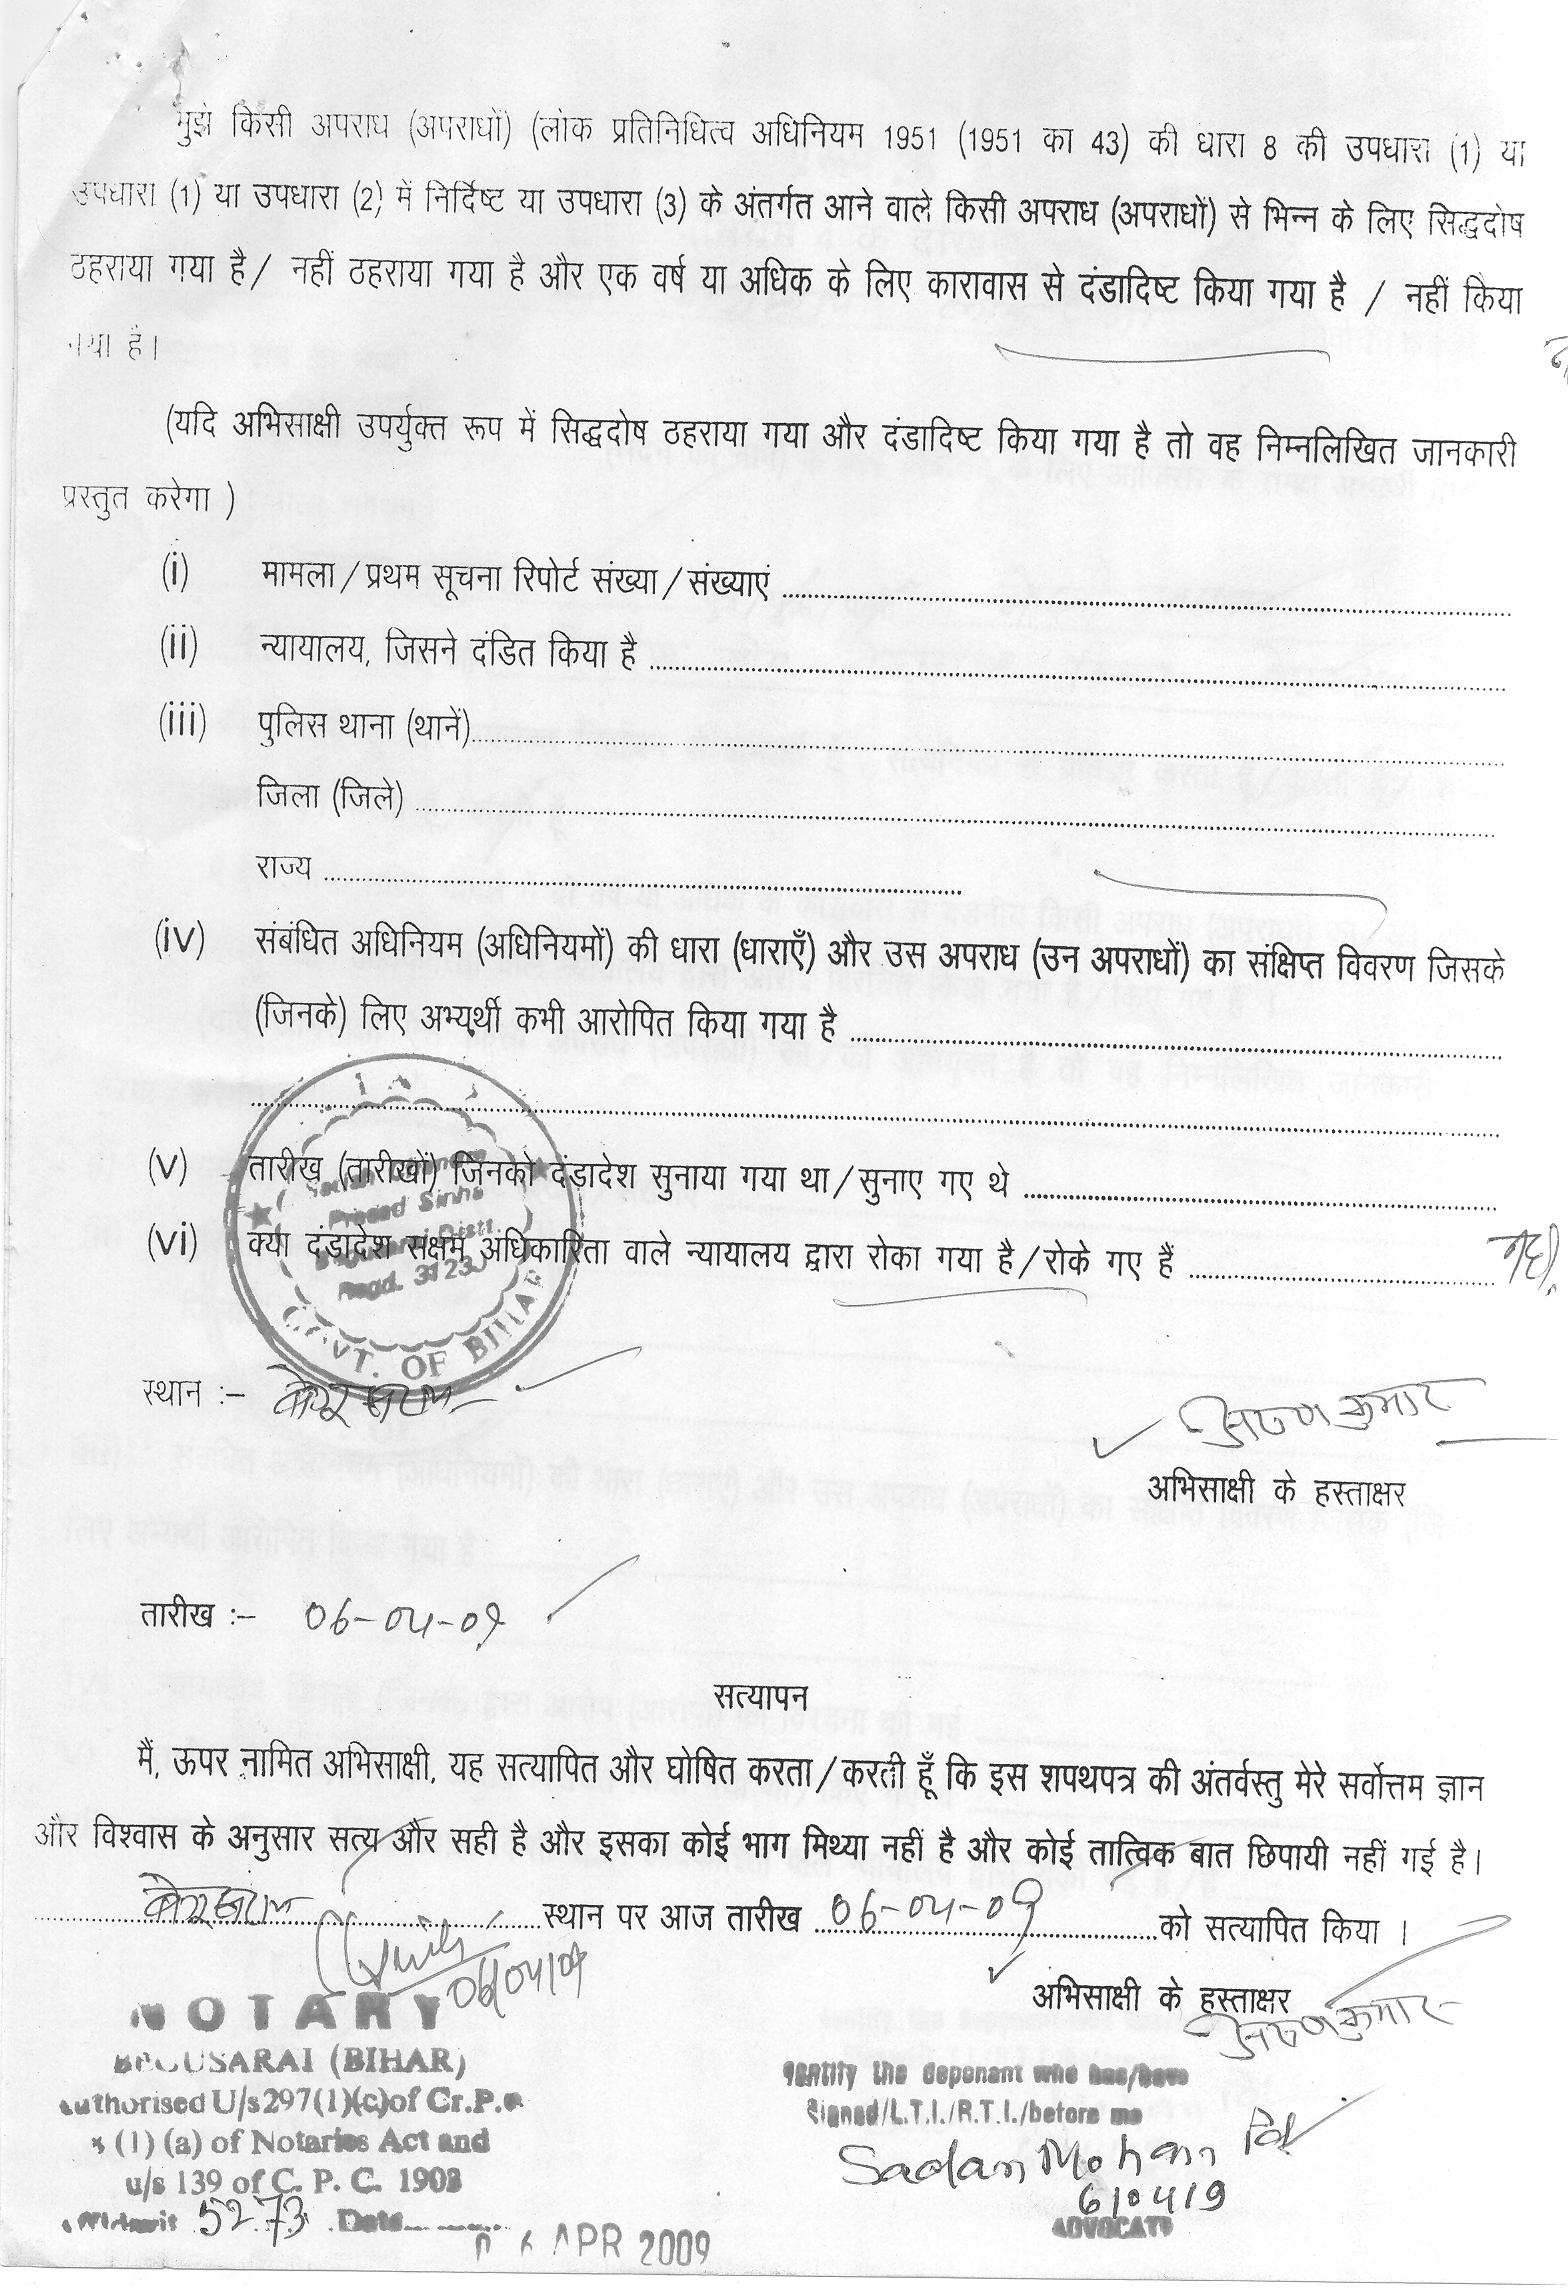 मुझे किसी अपराध (अपराधों) (लोक प्रतिनिधित्व अधिनियम 1951 (1951 का 43) की धारा 8 की उपधारा (1) या
उपधारा (1) या उपधारा (2) में निर्दिष्ट या उपधारा (3) के अंतर्गत आने वाले किसी अपराध (अपराधों) से भिन्न के लिए सिद्धदोष
ठहराया गया है / नहीं ठहराया गया है और एक वर्ष या अधिक के लिए कारावास से दंडादिष्ट किया गया है / नहीं किया
गया है।
(यदि अभिसाक्षी उपर्युक्त रूप में सिद्धदोष ठहराया गया और दंडादिष्ट किया गया है तो वह निम्नलिखित जानकारी
प्रस्तुत करेगा )
(i) मामला / प्रथम सूचना रिपोर्ट संख्या / संख्याएं
(ii) न्यायालय, जिसने दंडित किया है
(iii) पुलिस थाना (थानें)
जिला (जिले)
राज्य
(iv) संबंधित अधिनियम (अधिनियमों) की धारा (धाराएँ) और उस अपराध (उन अपराधों) का संक्षिप्त विवरण जिसके
(जिनके) लिए अभ्यर्थी कभी आरोपित किया गया है
(v) तारीख (तारीखों) जिनको दंडादेश सुनाया गया था / सुनाए गए थे
(vi) क्या दंडादेश सक्षम अधिकारिता वाले न्यायालय द्वारा रोका गया है / रोके गए हैं नहीं
Prasad Sinha
Regd. 3123
GOVT. OF BIHAR
स्थान :– बेगूसराय
अरुण कुमार
अभिसाक्षी के हस्ताक्षर
तारीख :– 06-04-09
सत्यापन
मैं, ऊपर नामित अभिसाक्षी, यह सत्यापित और घोषित करता / करती हूँ कि इस शपथपत्र की अंतर्वस्तु मेरे सर्वोत्तम ज्ञान
और विश्वास के अनुसार सत्य और सही है और इसका कोई भाग मिथ्या नहीं है और कोई तात्विक बात छिपायी नहीं गई है।
बेगूसराय स्थान पर आज तारीख 06-04-09 को सत्यापित किया ।
06/04/09
अभिसाक्षी के हस्ताक्षर
अरुण कुमार
NOTARY
BEGUSARAI (BIHAR)
Authorised U/s297(1)(c)of Cr.P.c
(1) (a) of Notaries Act and
u/s 139 of C. P. C. 1908
Affidavit 5273 Date
06 APR 2009
Identify the deponent who has/have
Signed/L.T.I./R.T.I./before me
Sadan Mohan Pd
6/04/9
ADVOCATE